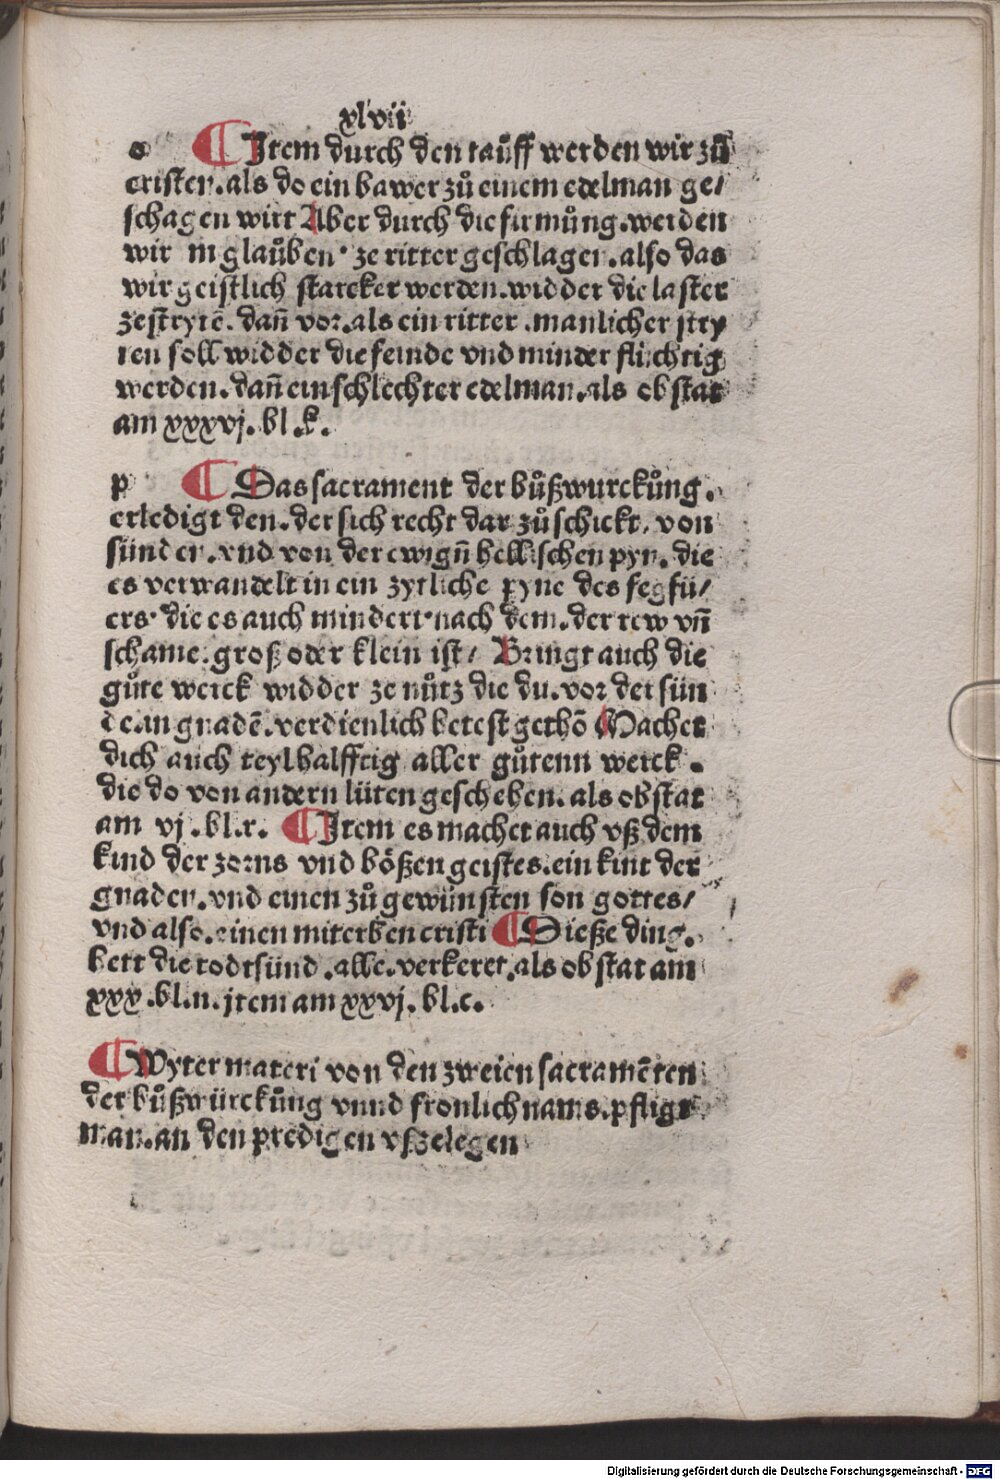 xlvii
o ¶ Jtem durch den tauͤff werden wir zuͦ
cristen. als do ein bawer zuͦ einem edelman ge/
schagen wirt Aber durch die firmuͦng. werden
wir in glauͤben · ze ritter geschlagen. also das
wir geistlich starcker werden. widder die laster
zestrytē. dañ vor. als ein ritter. manlicher stry
ten soll widder die feinde vnd minder flüchtig
werden. dañ ein schlechter edelman. als ob stat
am xxxvj. bl. k.
p ¶ Das sacrament der buͦßwurckuͦng.
erledigt den. der sich recht dar zuͦ schickt. von
sünden. vnd von der ewigñ hellischen pyn. die
es verwandelt in ein zytliche pyne des fegfü/
ers · die es auch mindert · nach dem. der rew vñ
schame. groß oder klein ist / Bringt auch die
guͦte werck widder ze nuͦtz die du. vor der sün
de. in gnadē. verdienlich hetest gethō Machet
dich auch teylhalfftig aller guͦtenn werck.
die do von andern lüten geschehen. als ob stat
am vj. bl. r. ¶ Jtem es machet auch vß dem
kind der zorns vnd bößen geistes. ein kint der
gnaden. vnd einen zuͦ gewünsten son gottes/
vnd also. einen miterben cristi ¶ Dieße ding.
hett die todtsünd. alle. verkeret. als ob stat am
xxx. bl. n. jtem am xxvj. bl. c.
¶ Wyter materi von den zweien sacramēten
der buͦßwürckuͦng vnnd fronlichnams. pfligt
man. an den predigen vßzelegen
Digitalisierung gefördert durch die Deutsche Forschungsgemeinschaft - DFG